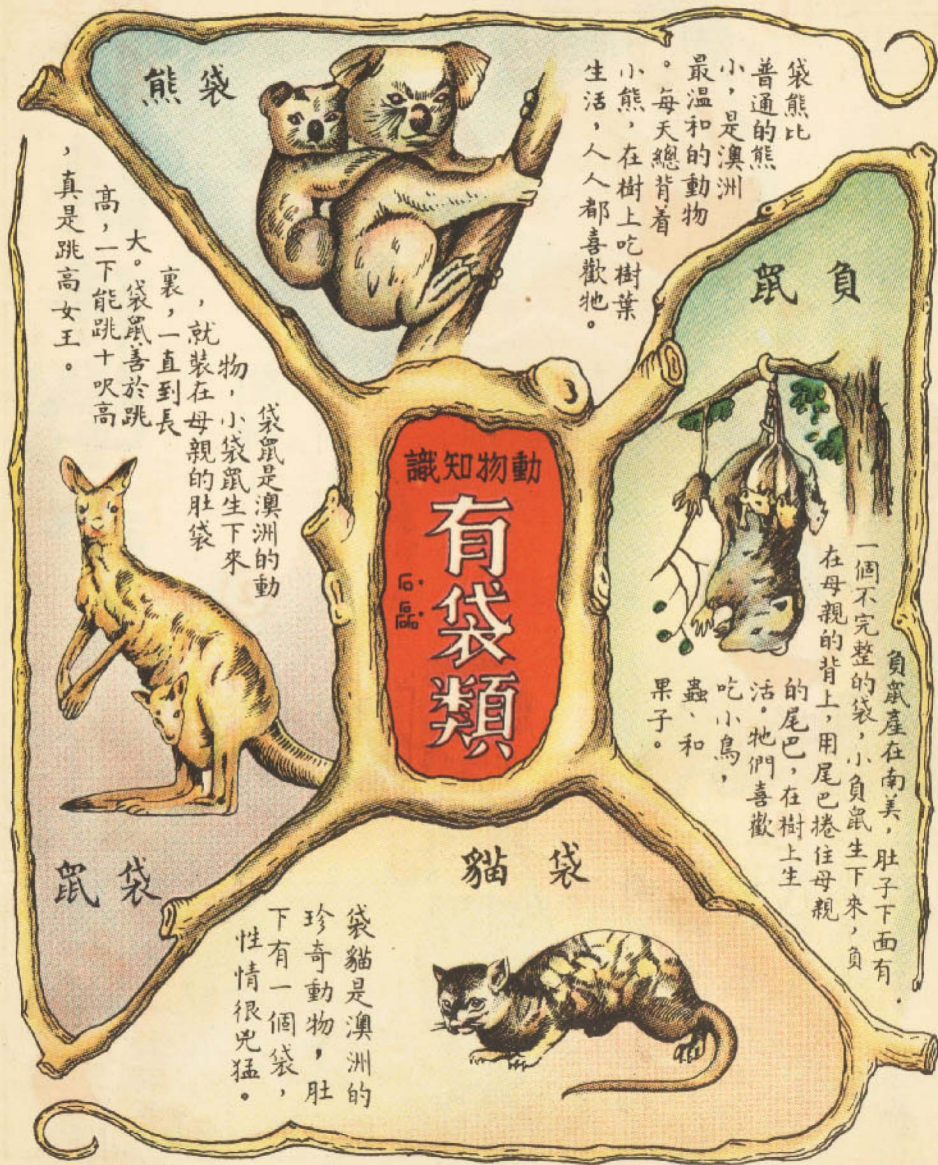 動物知識
有袋類
袋熊
袋熊比
普通的熊
小，是澳洲
最溫和的動物
。每天總背着
小熊，在樹上吃樹葉
生活，人人都喜歡牠。
負鼠
負鼠產在南美，肚子下面有
一個不完整的袋，小負鼠生下來，負
在母親的背上，用尾巴捲住母親
的尾巴，在樹上生
活。牠們喜歡
吃小鳥，
蟲、和
果子。
袋鼠是澳洲的動
物，小袋鼠生下來
，就裝在母親的肚袋
裏，一直到長
大。袋鼠善於跳
高，一下能跳十呎高
，真是跳高女王。
袋鼠
袋貓
袋貓是澳洲的
珍奇動物，肚
下有一個袋，
性情很兇猛。